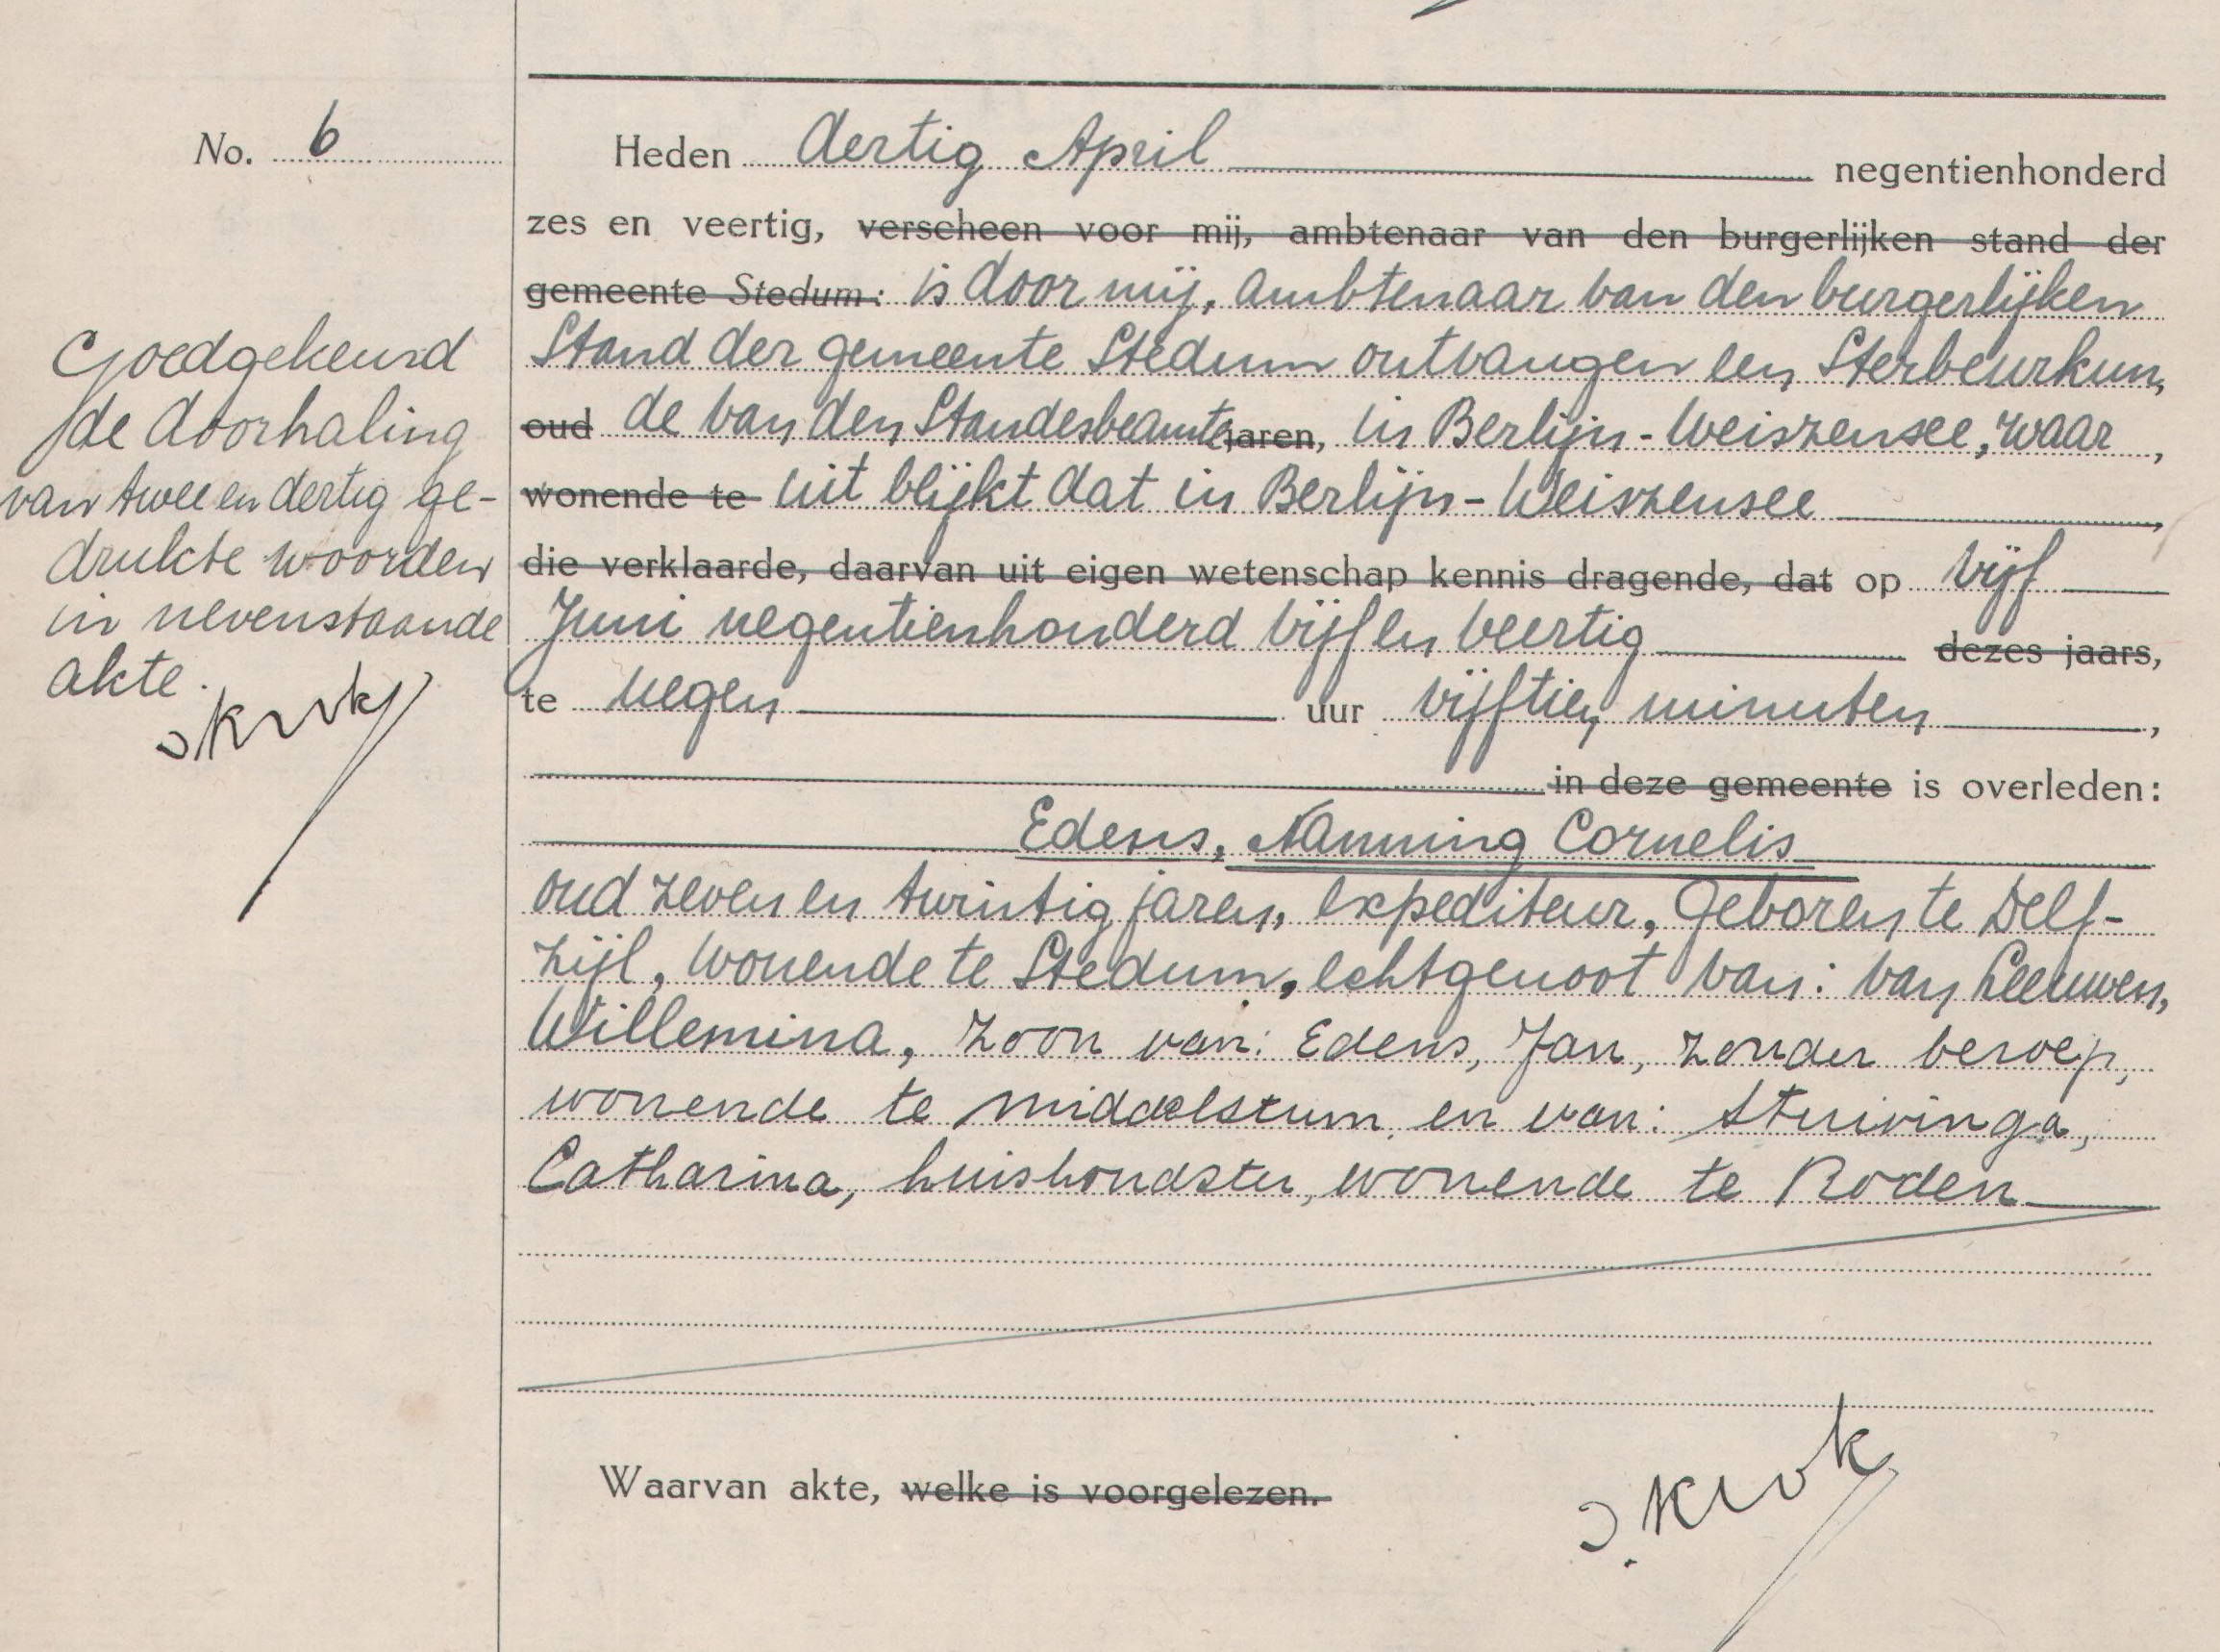 No. 6
Heden dertig April negentienhonderd
zes en veertig, verscheen voor mij, ambtenaar van den burgerlijken stand der
gemeente Stedum: is door mij, ambtenaar van den burgerlijken
Stand der gemeente Stedum ontvangen een Sterbeurkun,
oud de van den Standesbeamte jaren, in Berlijn-Weiszensee, waar,
wonende te uit blijkt dat in Berlijn-Weiszensee,
die verklaarde, daarvan uit eigen wetenschap kennis dragende, dat op vijf
Juni negentienhonderd vijf en veertig dezes jaars,
te negen uur vijftien minuten,
in deze gemeente is overleden:
Edens, Nanning Cornelis
oud zeven en twintig jaren, expediteur, geboren te Delf-
zijl, wonende te Stedum, echtgenoot van: van Leeuwen,
Willemina, zoon van: Edens, Jan, zonder beroep,
wonende te Middelstum en van: Stuivinga,
Catharina, huishoudster, wonende te Roden
Waarvan akte, welke is voorgelezen.
Goedgekeurd
de doorhaling
van twee en dertig ge-
drukte woorden
in nevenstaande
akte.